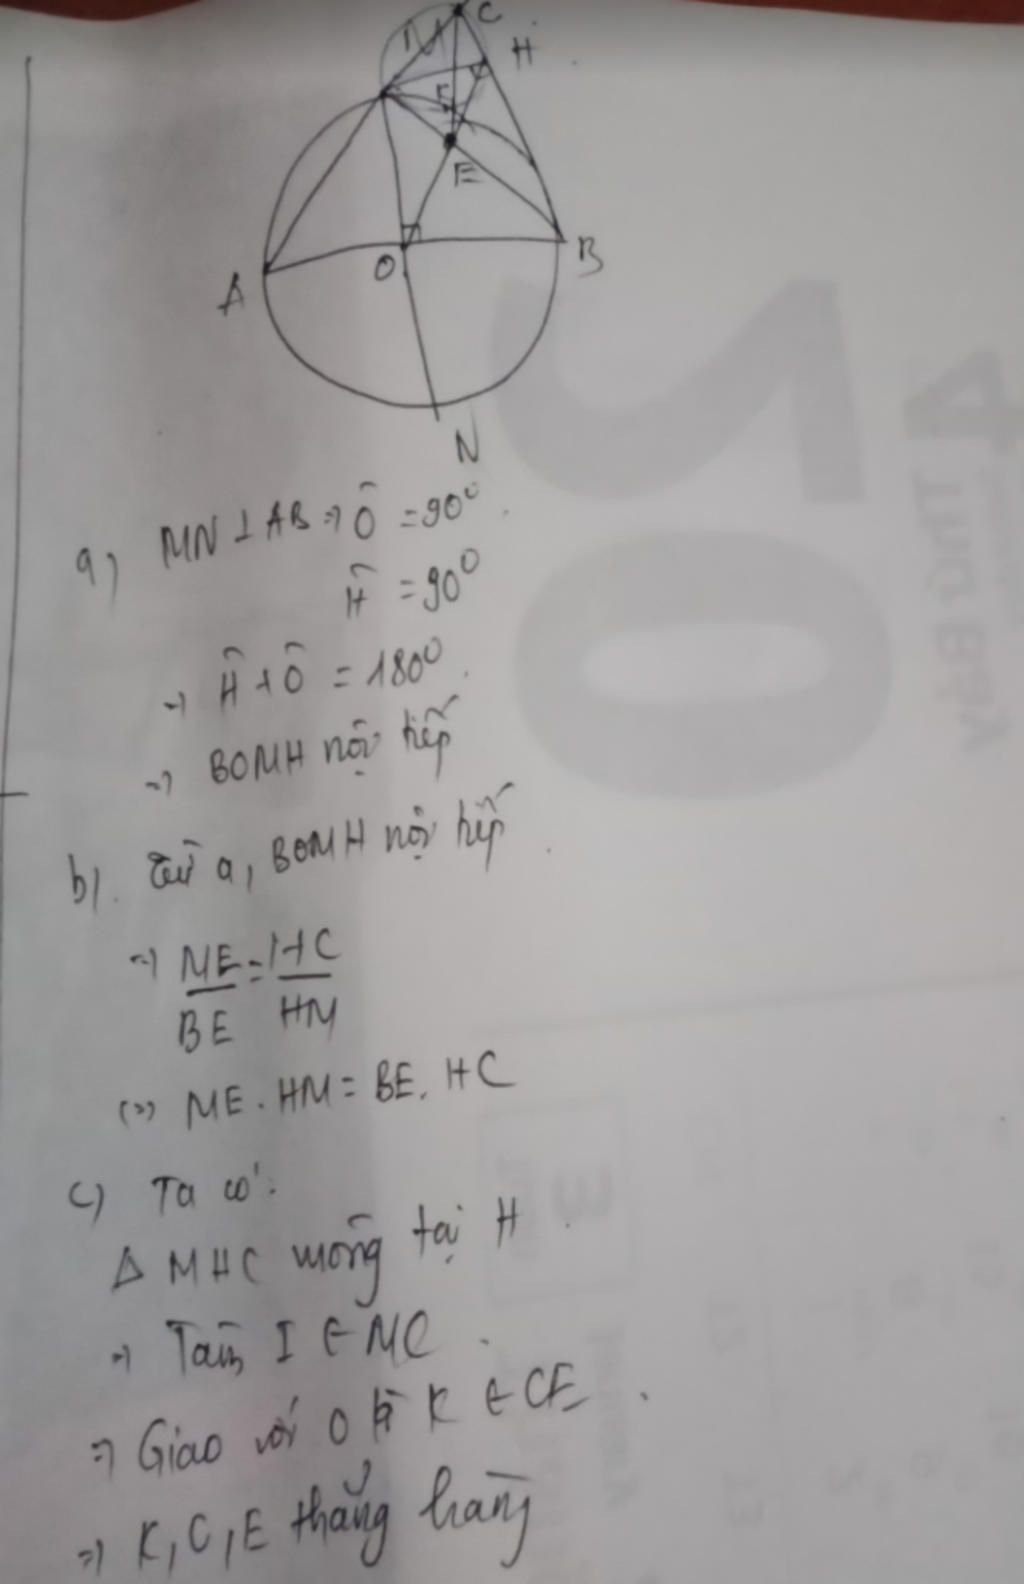 C
H
M
F
E
A
O
B
N
a) MN ⊥ AB ⇒ Ô = 90°.
Ĥ = 90°
⇒ Ĥ + Ô = 180°.
⇒ BOMH nội tiếp
b). Từ a, BOMH nội tiếp.
⇒ ME/BE = HC/HM
(⇒) ME. HM = BE. HC
c) Ta có:
Δ MHC vuông tại H.
⇒ Tâm I ∈ MC.
⇒ Giao với O là K ∈ CE.
⇒ K, C, E thẳng hàng
20
4
THỨ BẢY
3
12
13